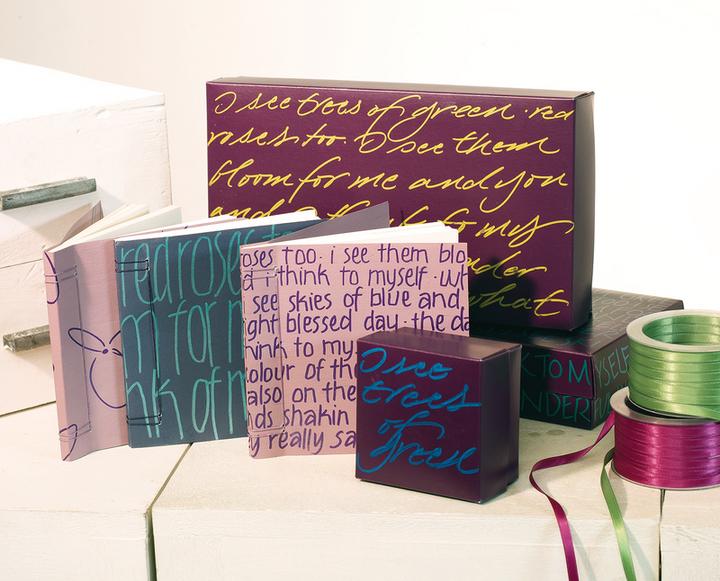 I see trees of green · red
roses too. I see them
bloom for me and you
and to my
what
red roses to
m for m
nk of m
oses too. i see them blo
think to myself · w
see skies of blue and
ight blessed day · the da
think to my
colour of th
also on the
nds shakin
y really sa
I see
trees
of
green
K TO MYSELF
NDERFU